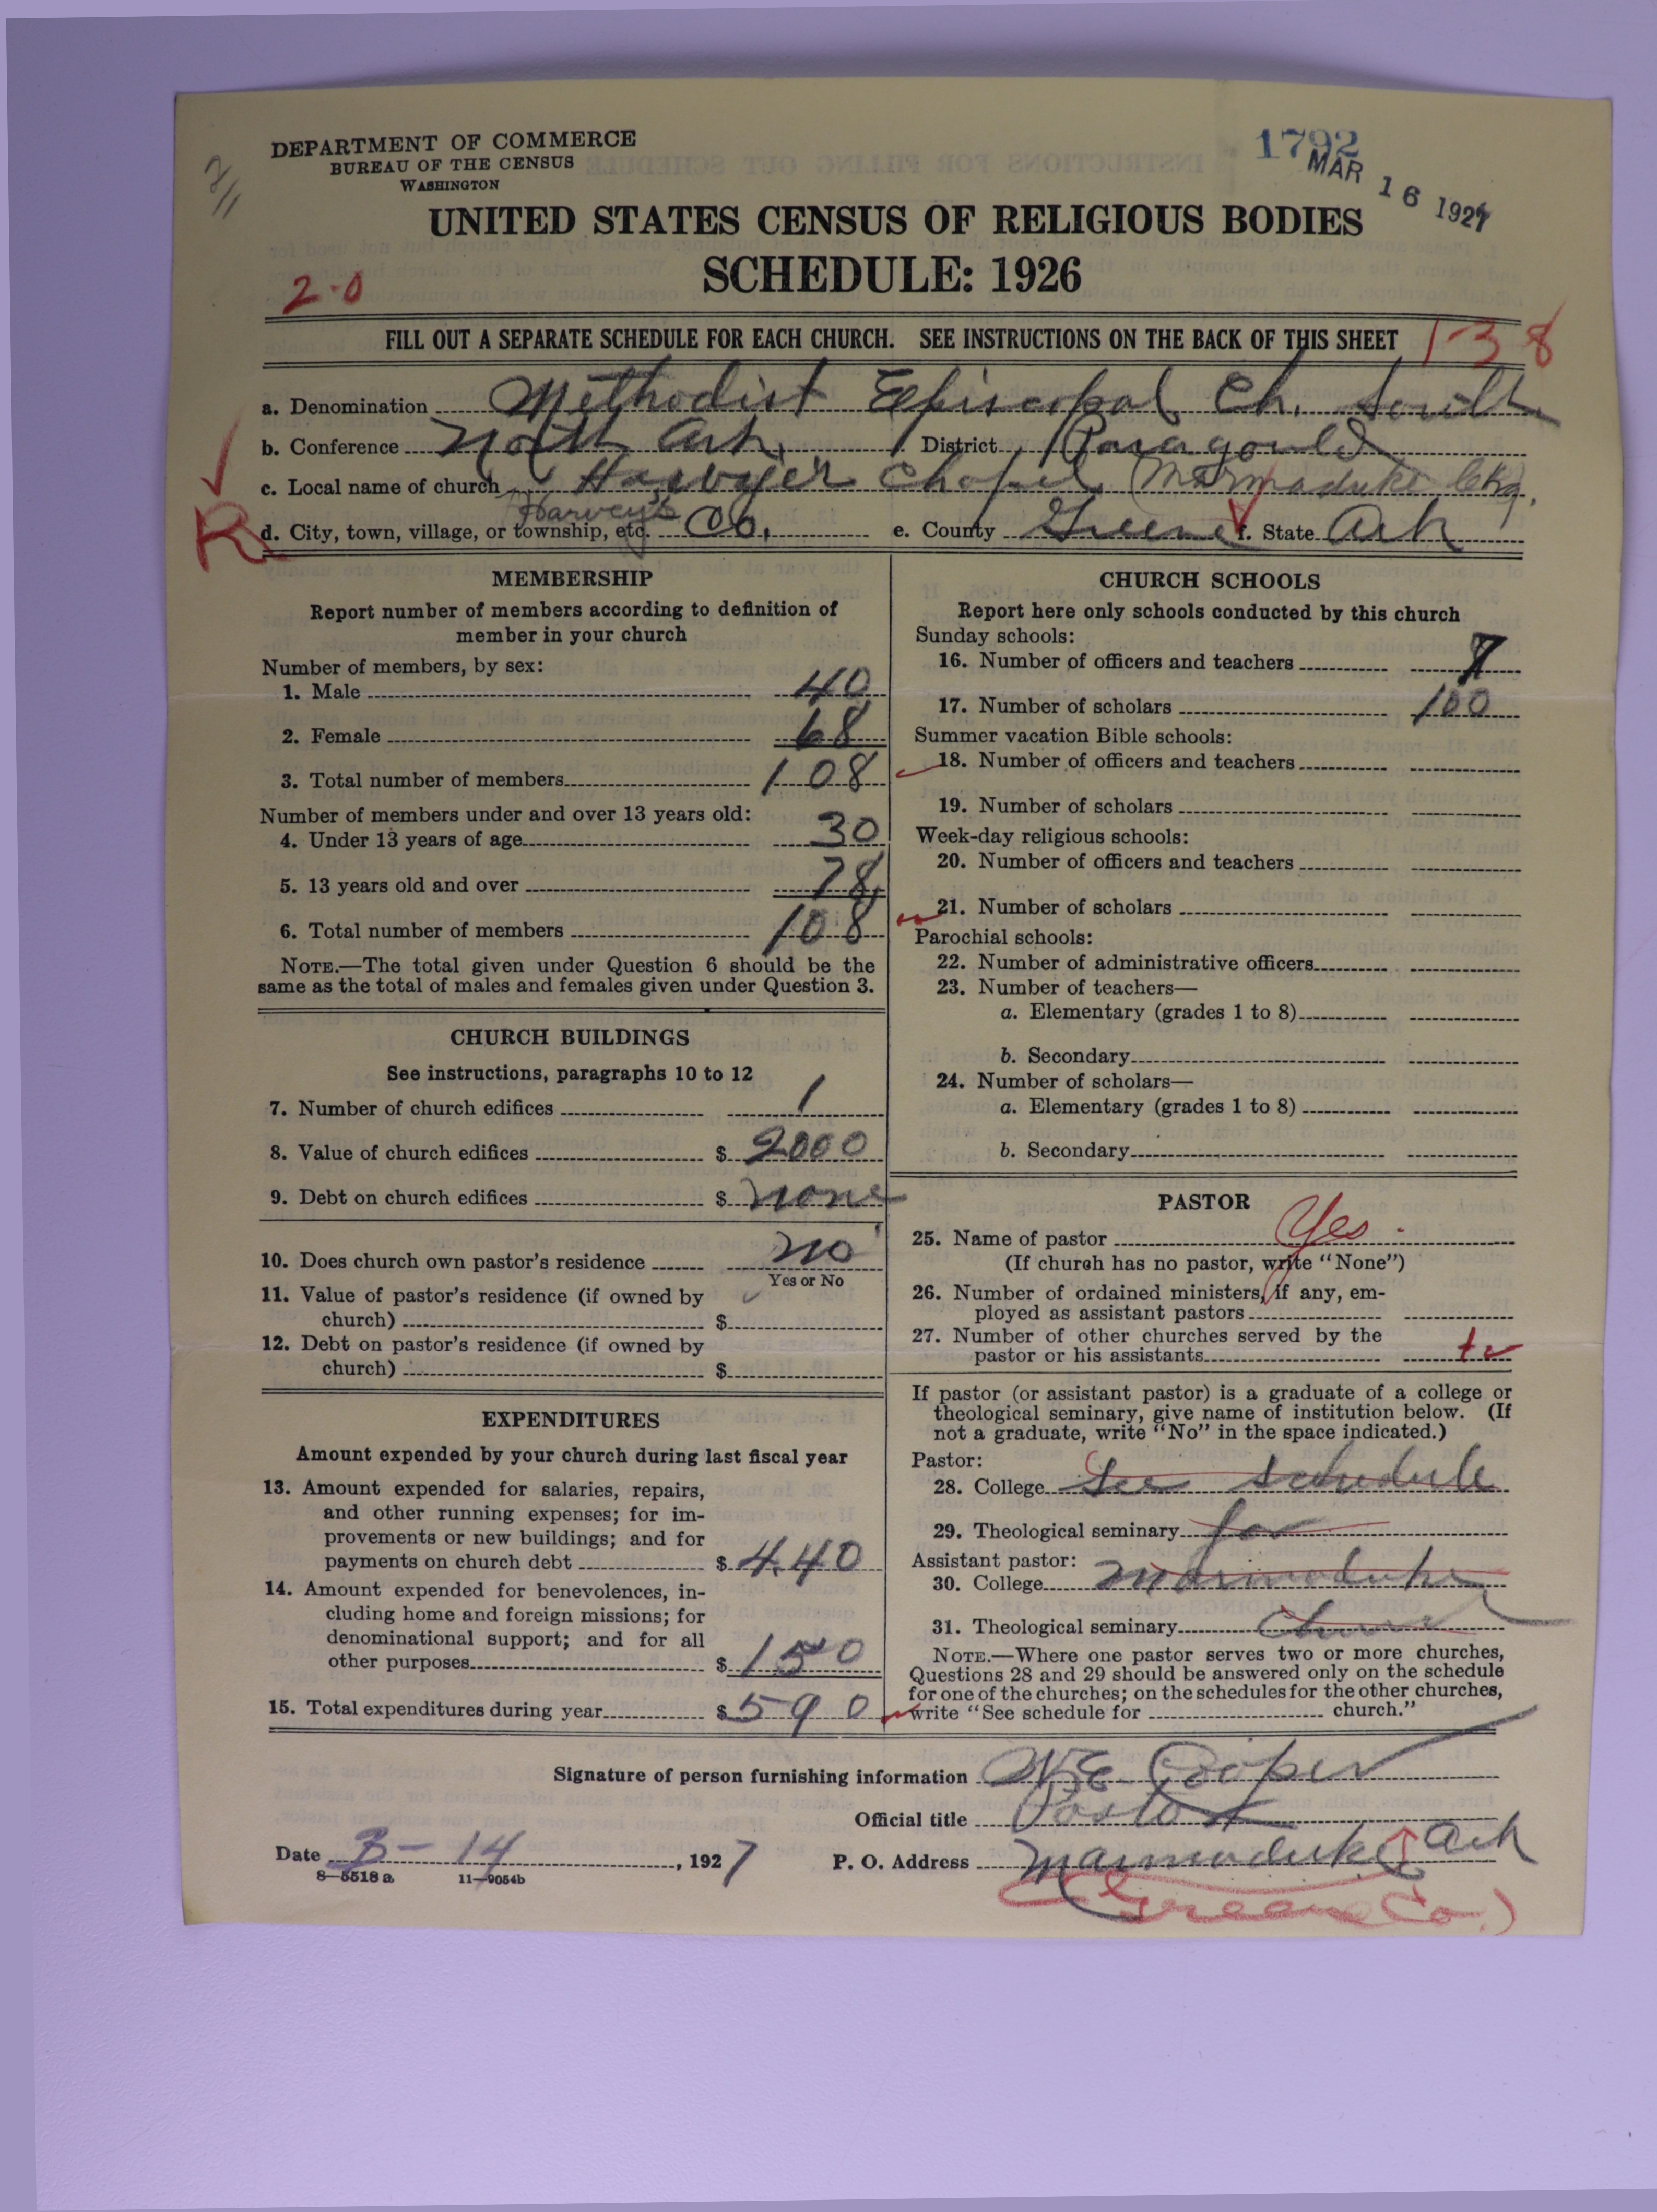 DEPARTMENT OF COMMERCE
BUREAU OF THE CENSUS
WASHINGTON
1792
MAR 16 1927
UNITED STATES CENSUS OF RELIGIOUS BODIES
SCHEDULE: 1926
2-0
FILL OUT A SEPARATE SCHEDULE FOR EACH CHURCH. SEE INSTRUCTIONS ON THE BACK OF THIS SHEET
1-38
a. Denomination Methodist Episcopal Ch. South
b. Conference North Ark. District Paragould
c. Local name of church Chapel (Marmaduke Chg.
Harvey's
R
d. City, town, village, or township, etc. Co. e. County Greene f. State Ark
MEMBERSHIP
Report number of members according to definition of
member in your church
Number of members, by sex:
1. Male 40
2. Female 68
3. Total number of members 108
Number of members under and over 13 years old:
4. Under 13 years of age 30
5. 13 years old and over 78
6. Total number of members 108
NOTE.—The total given under Question 6 should be the
same as the total of males and females given under Question 3.
CHURCH BUILDINGS
See instructions, paragraphs 10 to 12
7. Number of church edifices 1
8. Value of church edifices $ 2000
9. Debt on church edifices $ None
10. Does church own pastor's residence No
Yes or No
11. Value of pastor's residence (if owned by
church) $
12. Debt on pastor's residence (if owned by
church) $
EXPENDITURES
Amount expended by your church during last fiscal year
13. Amount expended for salaries, repairs,
and other running expenses; for im-
provements or new buildings; and for
payments on church debt $ 440
14. Amount expended for benevolences, in-
cluding home and foreign missions; for
denominational support; and for all
other purposes $ 150
15. Total expenditures during year $ 590
CHURCH SCHOOLS
Report here only schools conducted by this church
Sunday schools:
16. Number of officers and teachers 7
17. Number of scholars 100
Summer vacation Bible schools:
18. Number of officers and teachers
19. Number of scholars
Week-day religious schools:
20. Number of officers and teachers
21. Number of scholars
Parochial schools:
22. Number of administrative officers
23. Number of teachers—
a. Elementary (grades 1 to 8)
b. Secondary
24. Number of scholars—
a. Elementary (grades 1 to 8)
b. Secondary
PASTOR
25. Name of pastor Yes
(If church has no pastor, write "None")
26. Number of ordained ministers, if any, em-
ployed as assistant pastors
27. Number of other churches served by the
pastor or his assistants
If pastor (or assistant pastor) is a graduate of a college or
theological seminary, give name of institution below. (If
not a graduate, write "No" in the space indicated.)
Pastor:
28. College See schedule
29. Theological seminary for
Assistant pastor:
30. College Marmaduke
31. Theological seminary Church
NOTE.—Where one pastor serves two or more churches,
Questions 28 and 29 should be answered only on the schedule
for one of the churches; on the schedules for the other churches,
write "See schedule for church."
Signature of person furnishing information Cooper
Official title Pastor
Date 3-14, 1927 P. O. Address Marmaduke Ark
8-5518 a 11-9054b
(Greene Co.)